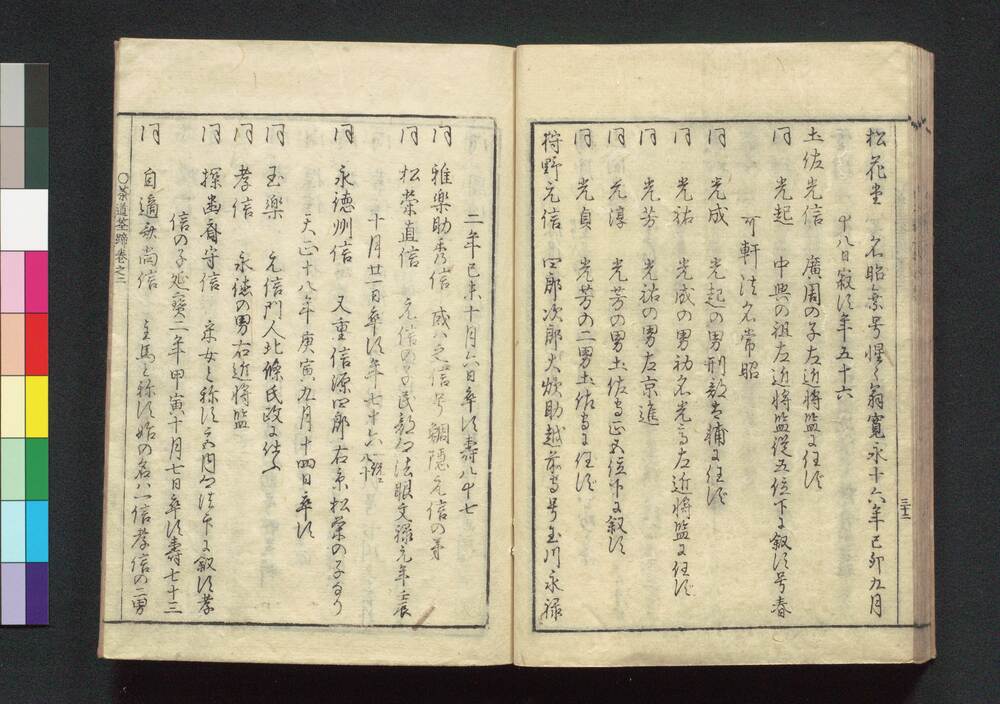 松花堂 名昭乗号惺々翁寛永十六年己卯九月
十八日寂ス年五十六
土佐光信 廣周の子左近将監に任ず
同 光起 中興の祖左近将監従五位下に叙ス号春
可軒法名常昭
同 光成 光起の男刑部大輔に任ず
同 光祐 光成の男初名光高左近将監に任ず
同 光芳 光祐の男左京進
同 光淳 光芳の男土佐守正五位下に叙ス
同 光貞 光芳の二男土佐守に任ず
狩野元信 四郎次郎大炊助越前守号玉川永禄
三十二
二年己未十月六日卒ス壽八十七
同 雅楽助秀信 或ハ之信号 輞隠元信の弟
同 松榮直信 元信の子民部卿法眼文禄元年壬辰
十月廿一日卒ス年七十六 一説ニ八十
同 永徳州信 又重信源四郎右京松榮の子なり
天正十八年庚寅九月十四日卒ス
同 玉樂 元信門人北條氏政に仕ふ
同 孝信 永徳の男右近将監
同 探幽斎守信 采女と称ス宮内卿法印に叙ス孝
信の子延寶二年甲寅十月七日卒ス壽七十三
同 自適斎尚信 主馬と称ス始の名ハ一信孝信の二男
○茶道筌蹄巻之二